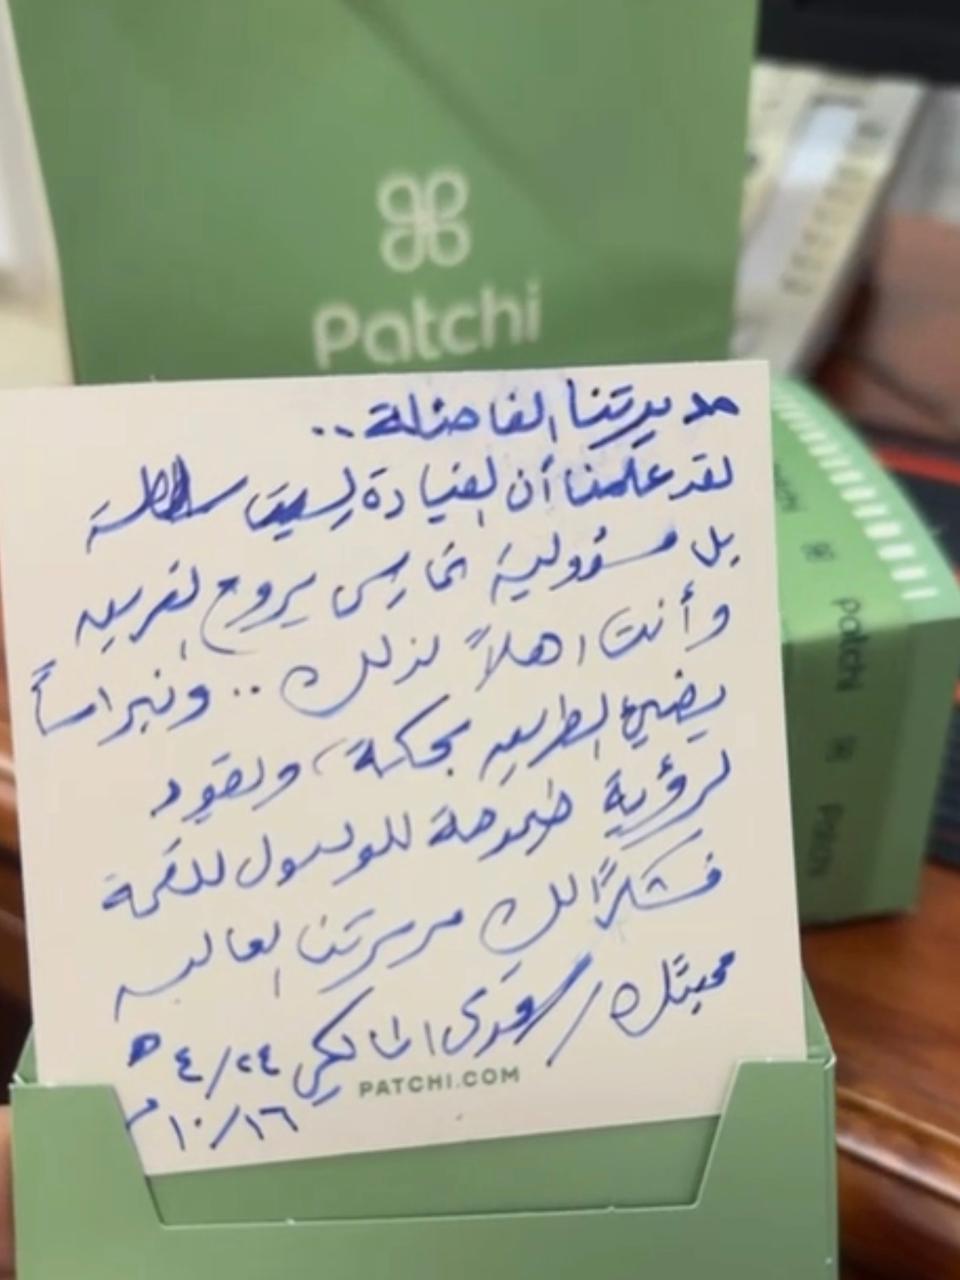 Patchi
مديرتنا الفاضلة..
لقد علمتنا أن القيادة ليست سلطة
بل مسؤولية تمارس بروح الفريق
وأنت اهلاً لذلك .. ونبراساً
يضيئ الطريق بحكمة، وتقود
لرؤية طموحة للوصول للقمة
فشكراً لك مديرتنا الغالية
محبتك / سعدى المالكي ٢٤/٤ هـ
١٦/١٠ م
PATCHI.COM
patchi
Patchi